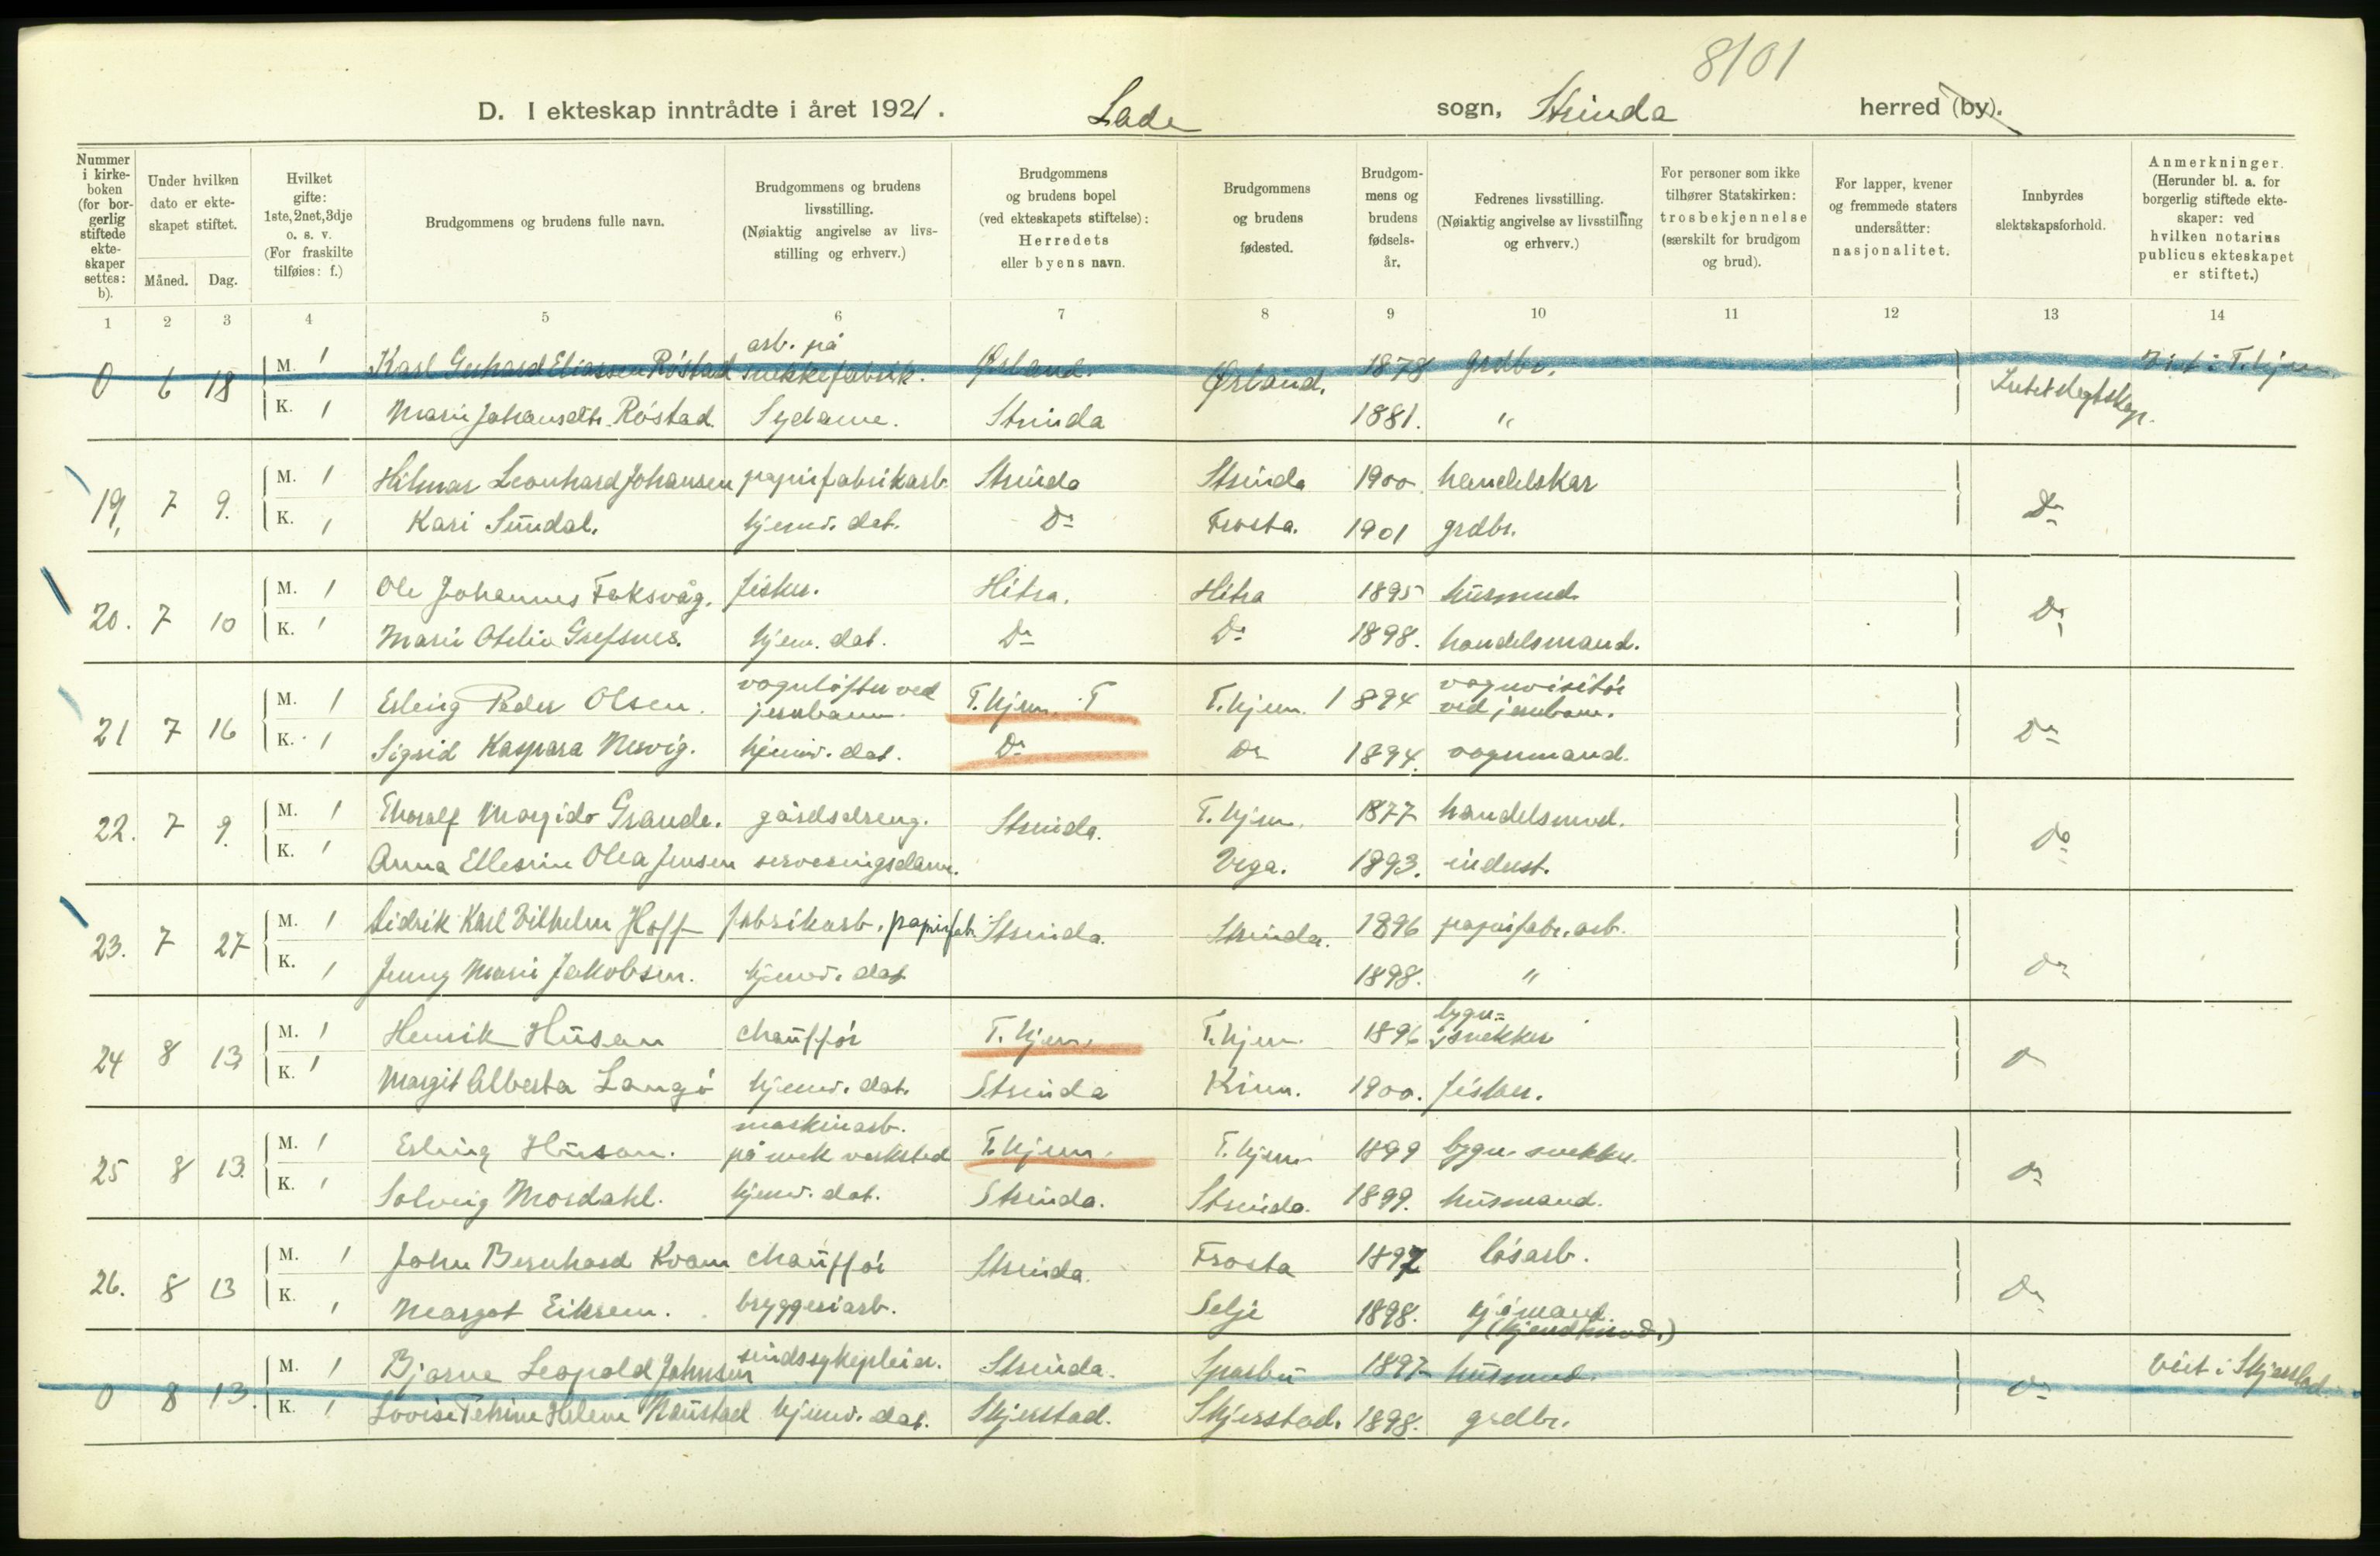 8101
D. I ekteskap inntrådte i året 1921. Lade sogn, Strinda herred (by).
Nummer i kirke-boken (for bor-gerlig stiftede ekte-skaper settes: b). Under hvilken dato er ekte-skapet stiftet. Måned. Dag. Hvilket gifte: 1ste, 2net, 3dje o. s. v. (For fraskilte tilføies: f.) Brudgommens og brudens fulle navn. Brudgommens og brudens livsstilling. (Nøiaktig angivelse av livs-stilling og erhverv.) Brudgommens og brudens bopel (ved ekteskapets stiftelse): Herredets eller byens navn. Brudgommens og brudens fødested. Brudgom-mens og brudens fødsels-år. Fedrenes livsstilling. (Nøiaktig angivelse av livsstilling og erhverv.) For personer som ikke tilhører Statskirken: trosbekjennelse (særskilt for brudgom og brud). For lapper, kvener og fremmede staters undersåtter: nasjonalitet. Innbyrdes slektskapsforhold. Anmerkninger. (Herunder bl. a. for borgerlig stiftede ekte-skaper: ved hvilken notarius publicus ekteskapet er stiftet.)
1 2 3 4 5 6 7 8 9 10 11 12 13 14
0 6 18 M. 1 Karl Gerhard Eliassen Röstad arb. på Ørland. Ørland. 1878 grdbr. Intet slegtskap. Viet i T.hjem.
K. 1 Marie Johansdtr. Röstad. Sydame. Strinda 1881. "
19, 7 9. M. 1 Hilmar Leonhard Johansen papirfabrikarb. Strinda Strinda 1900 handelskar Do
K. 1 Kari Sundal. hjemv. dat. Do Frosta. 1901 grdbr.
20. 7 10 M. 1 Ole Johannes Faksvåg. fisker. Hitra. Hitra 1895 husmnd. Do
K. 1 Marie Otelie Grefsnes. hjem. dat. Do Do 1898. handelsmand.
21 7 16 M. 1 Erling Peder Olsen. vognløfter ved jernbanen. T.hjem. T T.hjem. 1894 vognvisitör ved jernbane. Do
K. 1 Sigrid Kaspara Nesvig. hjemv. dat. Do Do 1894. vognmand.
22. 7 9. M. 1 Thoralf Margido Grande. gårdsdreng. Strinda. T.hjem. 1877 handelsmnd. Do
K. 1 Anna Ellesine Olea Jensen serveringsdame. Vega. 1893. inderst.
23. 7 27 M. 1 Didrik Karl Vilhelm Hoff fabrikarb. papirfab. Strinda. Strinda. 1896 papirfabr. arb. Do
K. 1 Jenny Marie Jakobsen. hjemv. dat 1898. "
24 8 13 M. 1 Henrik Husan chaufför T.hjem. T.hjem. 1896 bygn= snekker Do
K. 1 Margit Alberta Langö hjemv. dat. Strinda Kinn. 1900. fisker.
25 8 13. M. 1 Erling Husan. maskinarb. på mek verksted T.hjem. T.hjem 1899 bygn. snekker. Do
K. 1 Solveig Mordahl. hjemv. dat. Strinda. Strinda. 1899. husmand.
26. 8 13 M. 1 John Bernhard Kvam chaufför Strinda. Frosta 1897 lösarb. Do
K. 1 Margot Eikrem. bryggeriarb. Selje 1898.
0 8 13. M. 1 Bjarne Leopold Johnsen sindssykepleier. Strinda. Sparbu 1897 husmnd. Do Viet i Skjerstad.
K. 1 Lovise Petrine Helene Naustad hjemv. dat. Skjerstad. Skjerstad. 1898. grdbr.